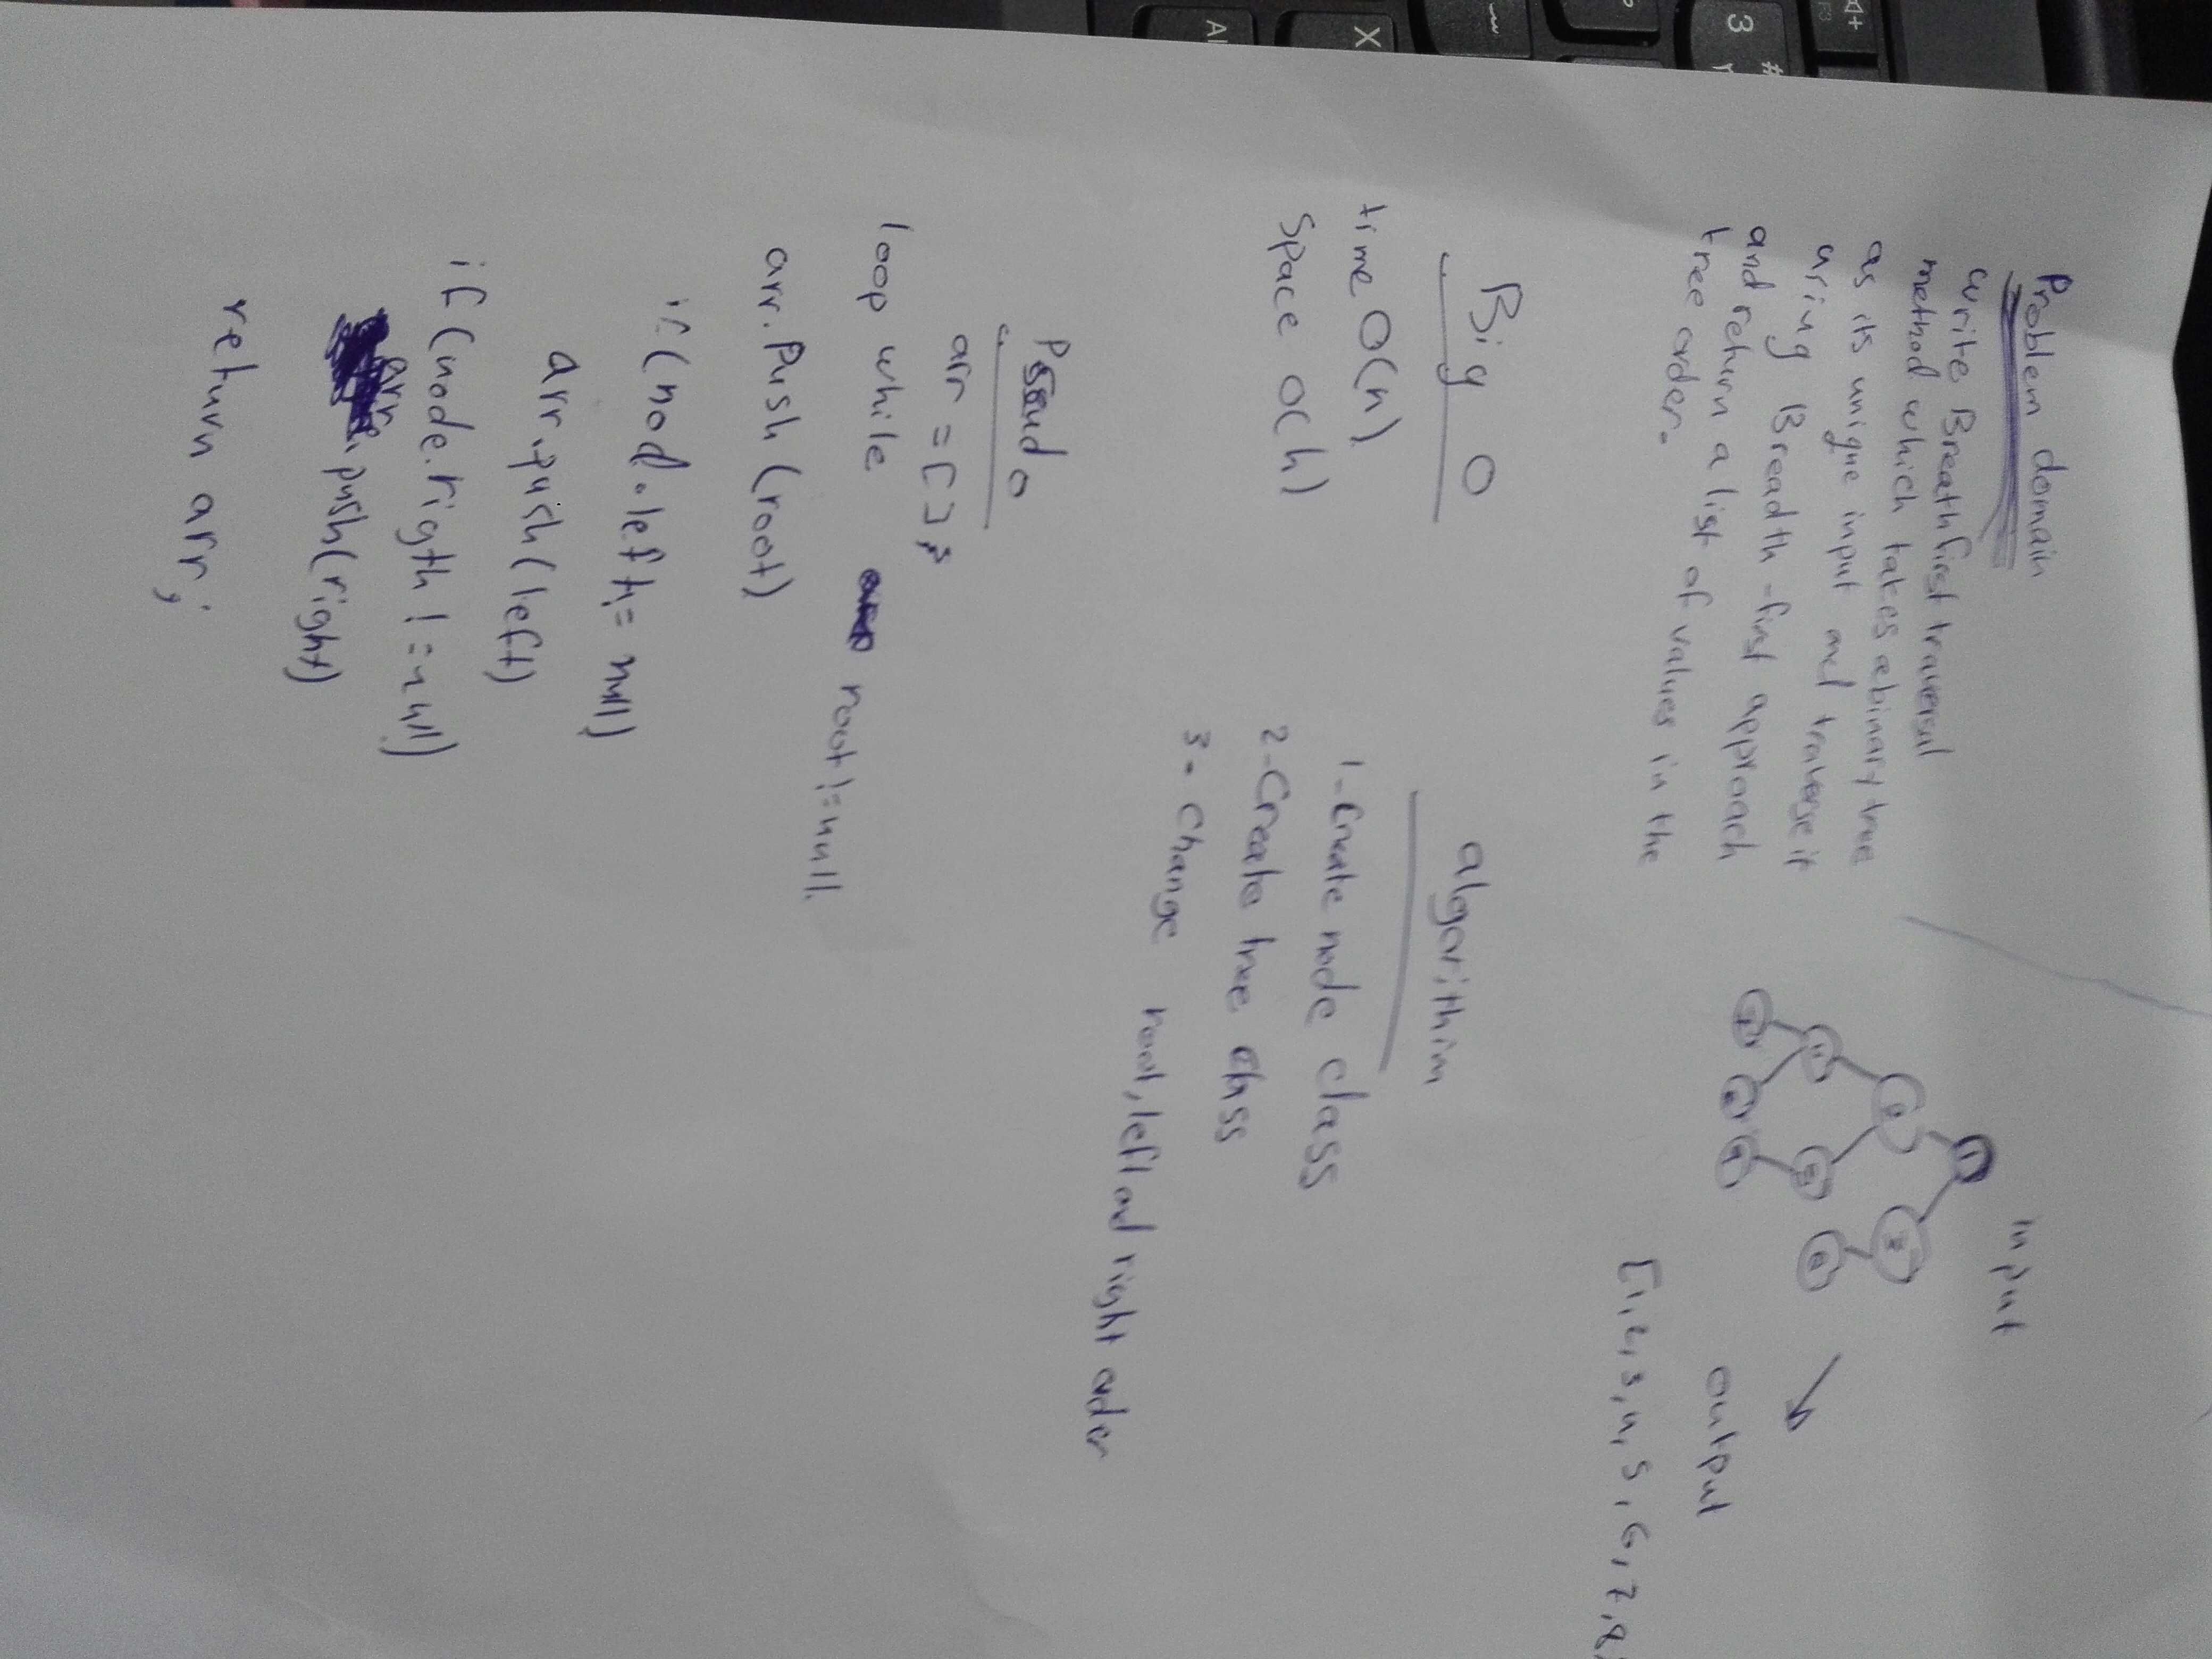 Problem domain
write Breath first traversal
method which takes a binary tree
as its unique input and traverse it
using Breadth-first approach
and return a list of values in the
tree order.
input
1
2
3
4
5
6
output
[1,2,3,4,5,6,7,8,
Big O
time O(n)
space O(h)
algorithim
1-Create node class
2-Create tree class
3- Change root, left ad right order
arr = [];
loop while root != null.
arr.Push (root)
if (nod.left != null)
arr.push (left)
if (node.rigth != null)
arr.push(right)
return arr;
X
3
#
F3